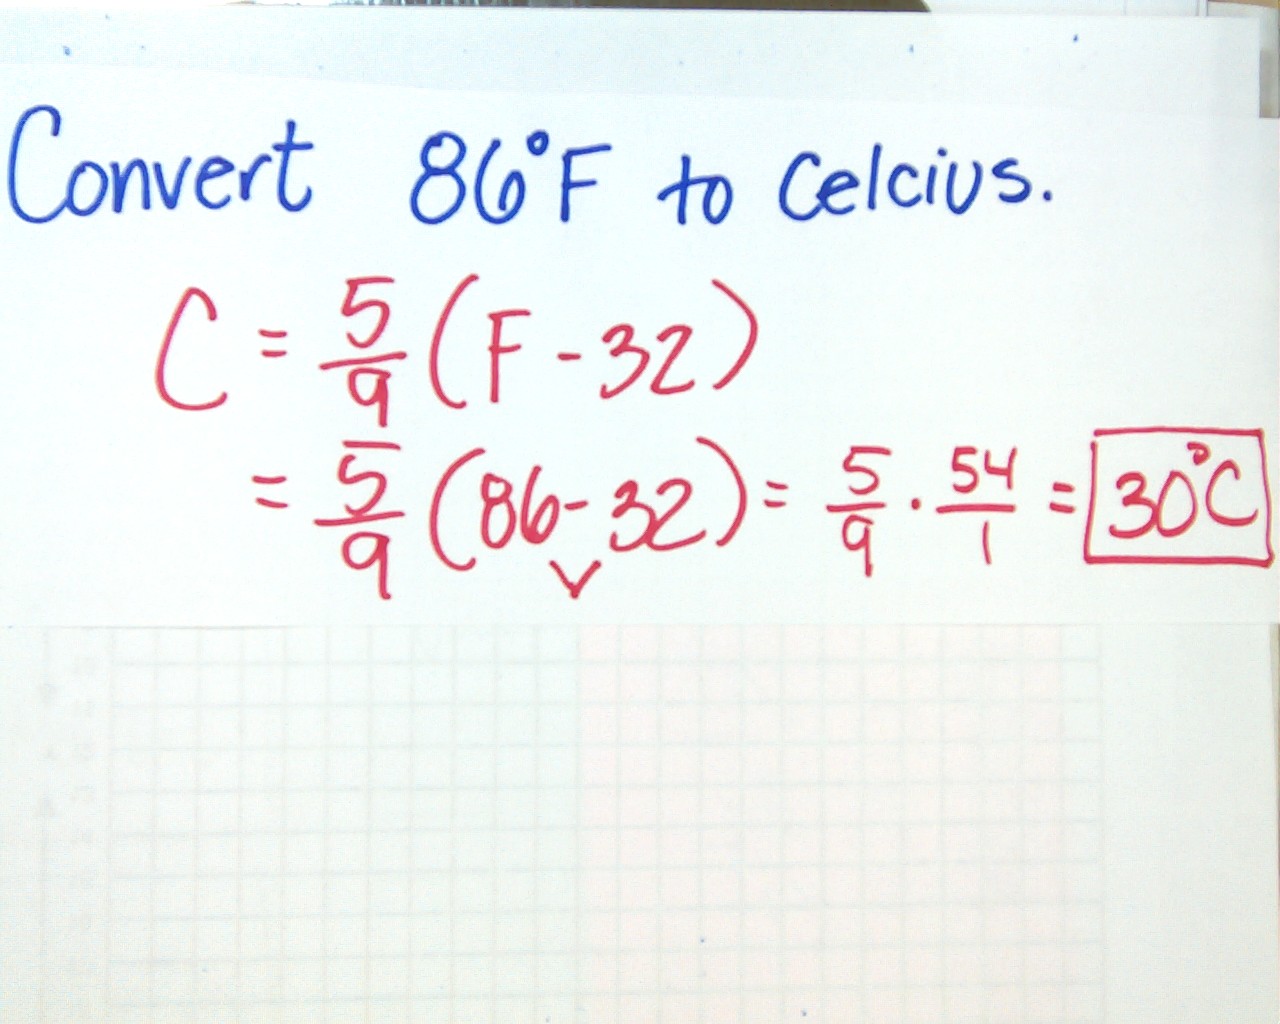 Convert 86°F to Celcius.
C = 5/9 (F - 32)
= 5/9 (86 - 32) = 5/9 · 54/1 = 30°C